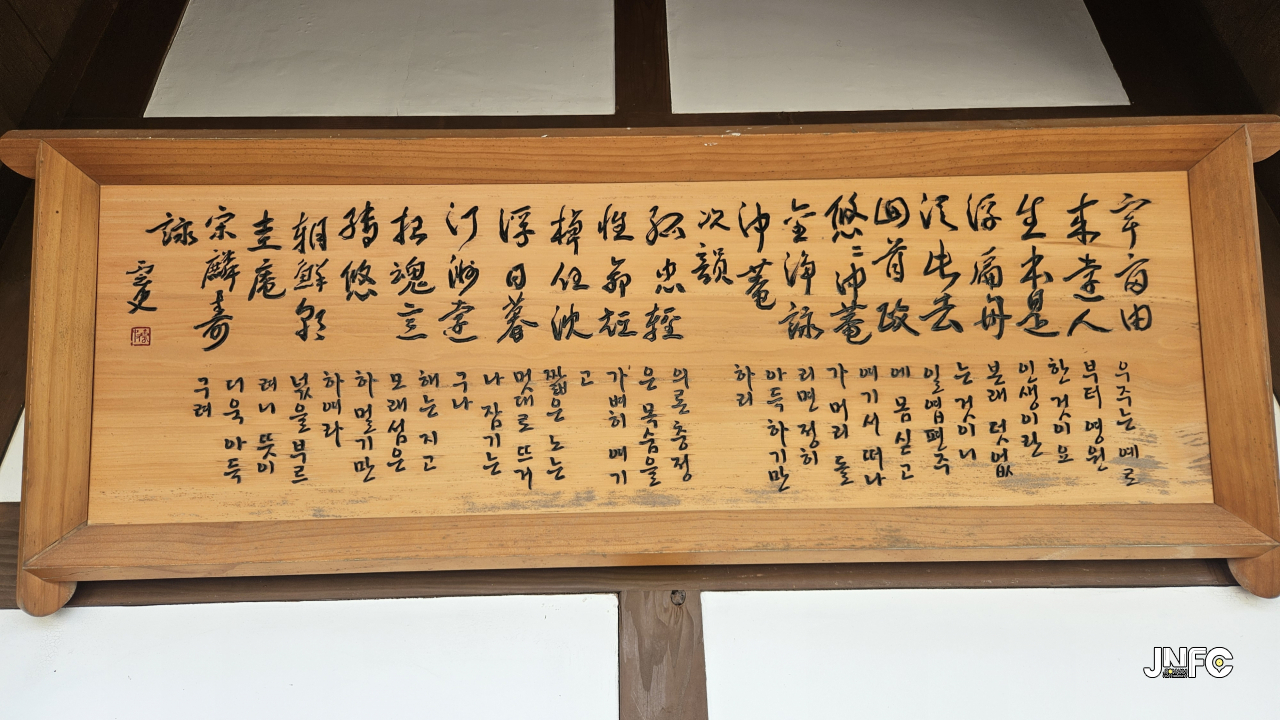 宇宙由
来遠人
生本是
浮扁舟
從此去
回首政
悠〻沖菴
金淨詠
沖菴
次韻
孤忠輕
性命短
棹任沈
浮日暮
汀洲遠
招魂意
轉悠
朝鮮朝
圭庵
宋麟壽
詠
우주는 예로
부터 영원
한 것이요
인생이란
본래 덧없
는 것이니
일엽편주
에 몸 싣고
여기서 떠나
가 머리 돌
리면 정히
아득하기만
하리
의론충정
은 목숨을
가벼히 여기
고
짧은 노는
멋대로 뜨거
나 잠기는
구나
해는 지고
모래섬은
하 멀기만
하여라
넋을 부르
려니 뜻이
더욱 아득
구려
JNFC